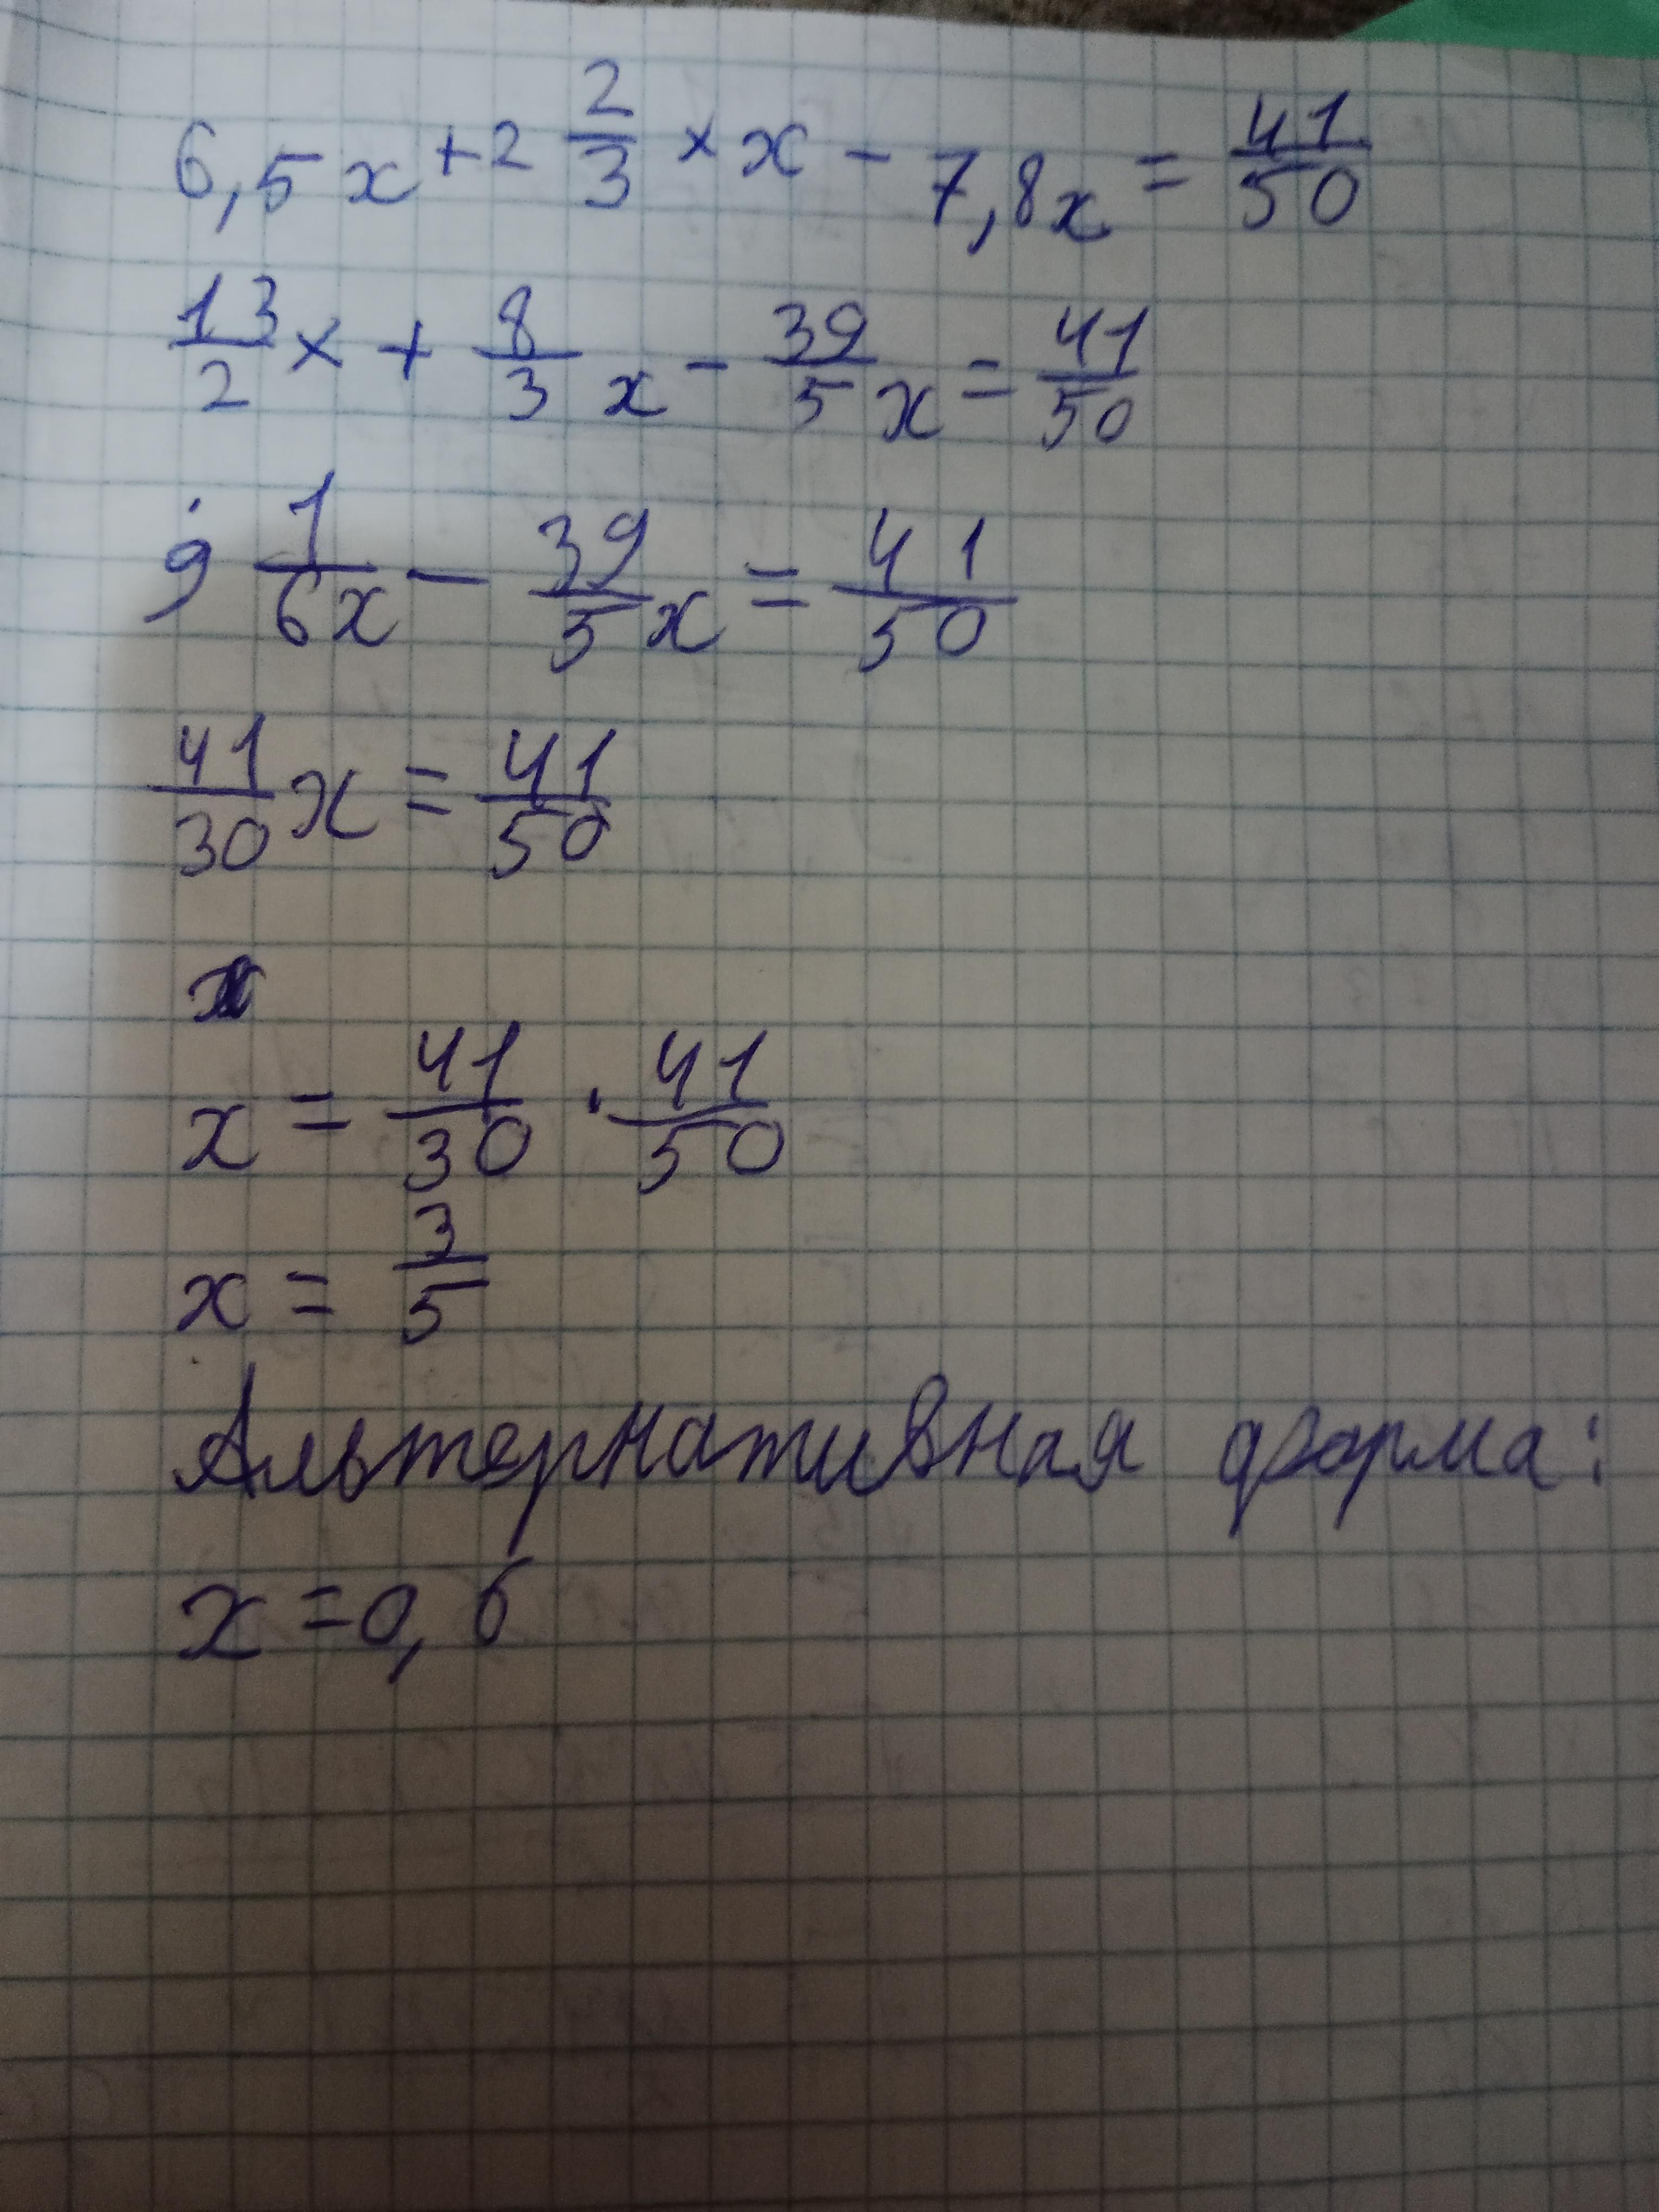 6,5x + 2 2/3 × x - 7,8x = 41/50
13/2 x + 8/3 x - 39/5 x = 41/50
9 1/6x - 39/5 x = 41/50
41/30 x = 41/50
x
x = 41/30 · 41/50
x = 3/5
Альтернативная форма:
x = 0,6